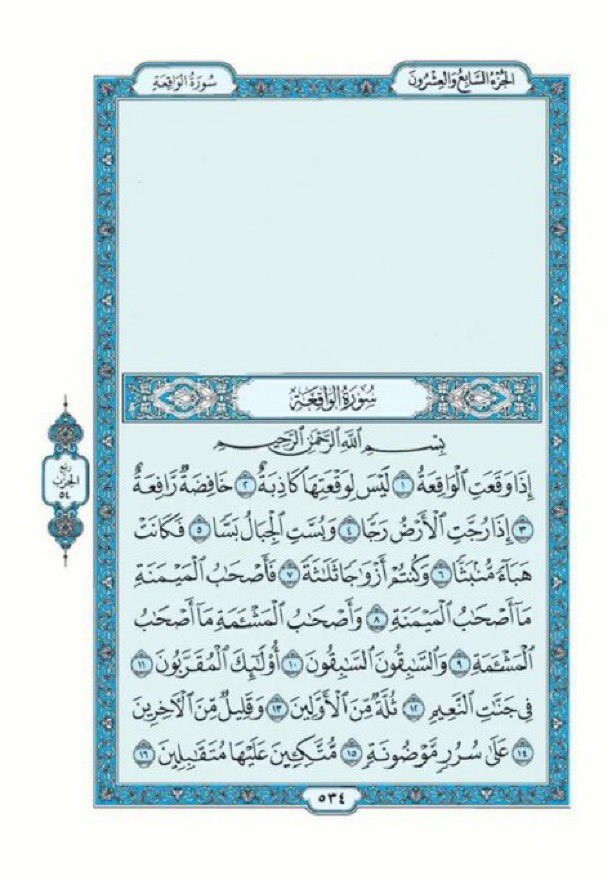 الجُزْءُ السَّابِعُ وَالعِشْرُونَ
سُورَةُ الوَاقِعَةِ
سُورَةُ الوَاقِعَةِ
بِسْمِ ٱللَّهِ ٱلرَّحْمَٰنِ ٱلرَّحِيمِ
إِذَا وَقَعَتِ ٱلْوَاقِعَةُ ١ لَيْسَ لِوَقْعَتِهَا كَاذِبَةٌ ٢ خَافِضَةٌ رَّافِعَةٌ
٣ إِذَا رُجَّتِ ٱلْأَرْضُ رَجًّا ٤ وَبُسَّتِ ٱلْجِبَالُ بَسًّا ٥ فَكَانَتْ
هَبَآءً مُّنۢبَثًّا ٦ وَكُنتُمْ أَزْوَٰجًا ثَلَٰثَةً ٧ فَأَصْحَٰبُ ٱلْمَيْمَنَةِ
مَآ أَصْحَٰبُ ٱلْمَيْمَنَةِ ٨ وَأَصْحَٰبُ ٱلْمَشْـَٔمَةِ مَآ أَصْحَٰبُ
ٱلْمَشْـَٔمَةِ ٩ وَٱلسَّٰبِقُونَ ٱلسَّٰبِقُونَ ١٠ أُو۟لَٰٓئِكَ ٱلْمُقَرَّبُونَ ١١
فِى جَنَّٰتِ ٱلنَّعِيمِ ١٢ ثُلَّةٌ مِّنَ ٱلْأَوَّلِينَ ١٣ وَقَلِيلٌ مِّنَ ٱلْـَٔاخِرِينَ
١٤ عَلَىٰ سُرُرٍ مَّوْضُونَةٍ ١٥ مُّتَّكِـِٔينَ عَلَيْهَا مُتَقَٰبِلِينَ ١٦
ربع
الحزب
٥٤
٥٣٤